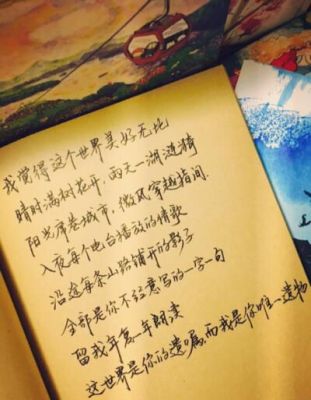 我觉得这个世界美好无比
晴时满树花开，雨天一湖涟漪
阳光席卷城市，微风穿越指间，
入夜每个电台播放的情歌
沿途每条山路铺开的影子
全部是你不经意写的一字一句
留我年复一年朗读
这世界是你的遗嘱，而我是你唯一遗物